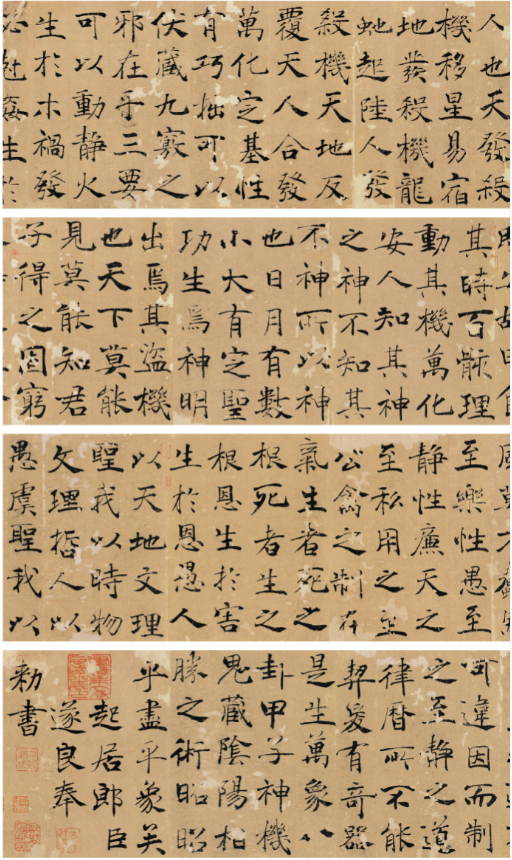 人也天發殺
機移星易宿
地發殺機龍
虵起陸人發
殺機天地反
覆天人合發
萬化定基性
有巧拙可以
伏藏九竅之
邪在乎三要
可以動静火
生於木禍發
必剋姦生於
其時百骸理
動其機萬化
安人知其神
之神不知其
不神所以神
也日月有數
小大有定聖
功生焉神明
出焉其盜機
也天下莫能
見莫能知君
子得之固窮
至樂性愚至
静性廉天之
至私用之至
公禽之制在
氣生者死之
根死者生之
根恩生於害
生於恩愚人
以天地文理
聖我以時物
文理哲人以
愚虞聖我以
可違因而制
之至静之道
律曆所不能
契爰有奇器
是生萬象八
卦甲子神機
鬼藏陰陽相
勝之術昭昭
乎盡乎象矣
起居郎臣
遂良奉
勑書